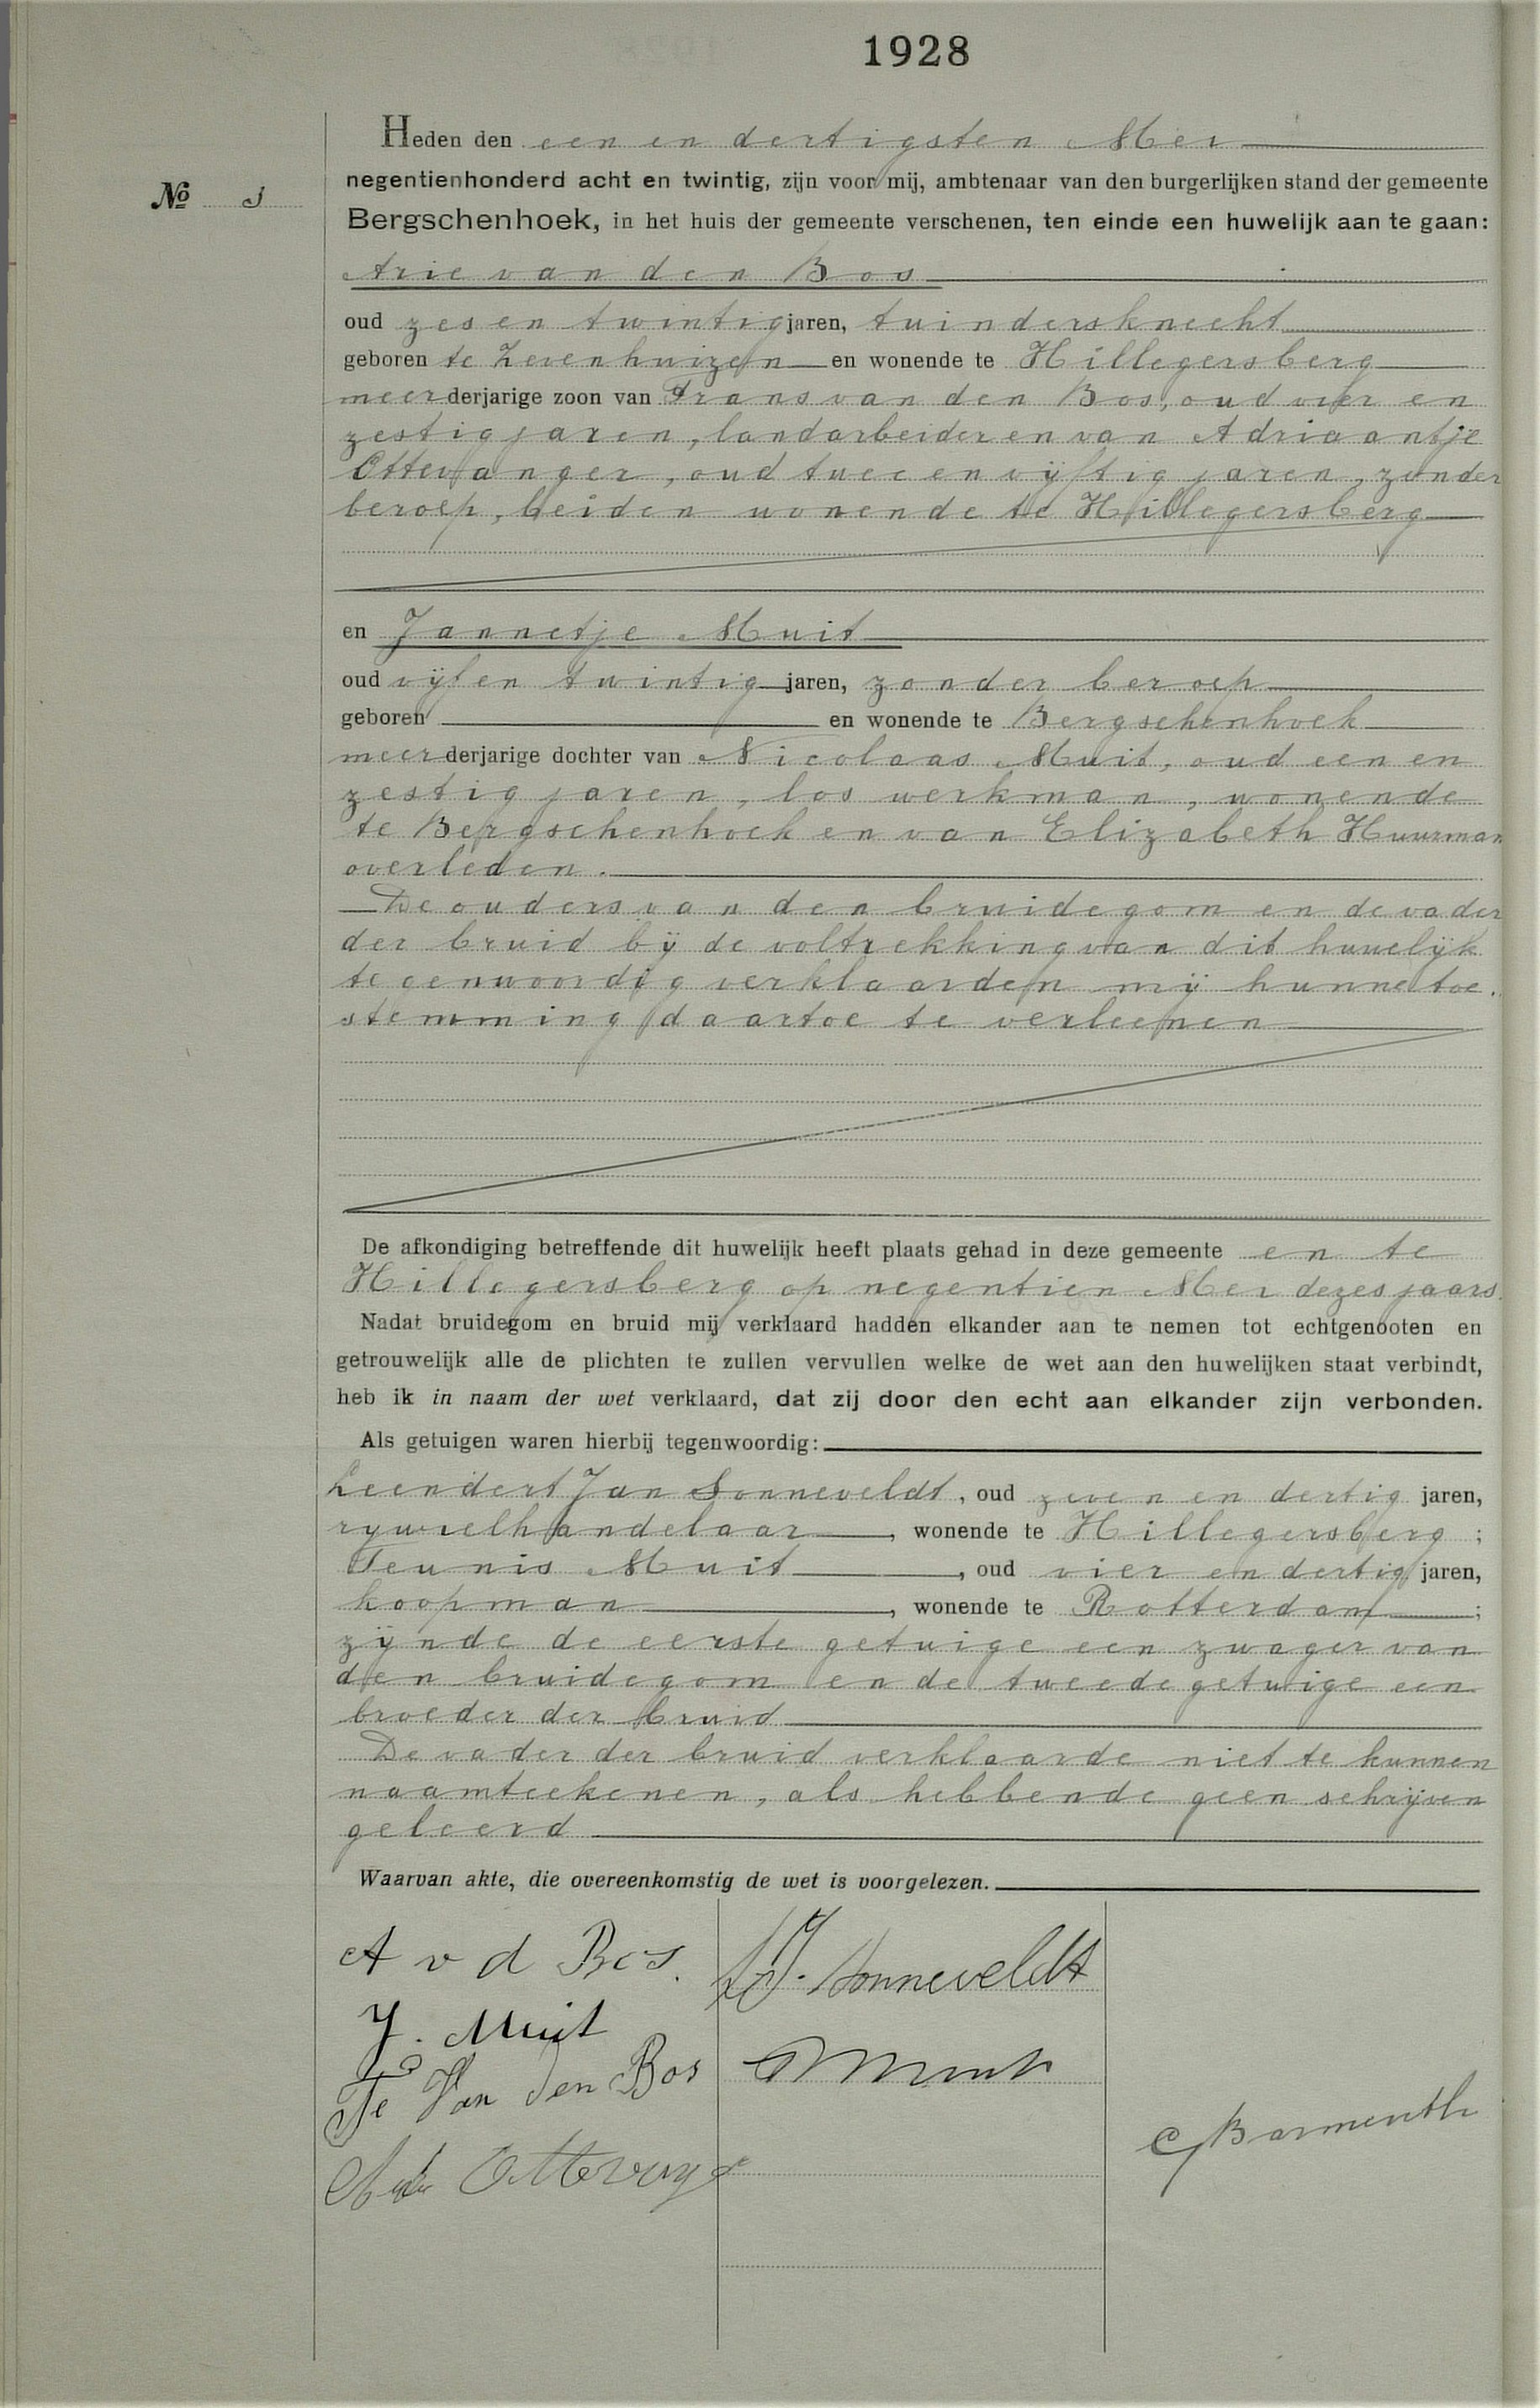 1928
Heden den een en dertigsten Mei
No
negentienhonderd acht en twintig, zijn voor mij, ambtenaar van den burgerlijken stand der gemeente
Bergschenhoek, in het huis der gemeente verschenen, ten einde een huwelijk aan te gaan:
Arie van den Bos
oud zes en twintig jaren, tuindersknecht
geboren te Zevenhuizen en wonende te Hillegersberg
meerderjarige zoon van Frans van den Bos, oud vier en
zestig jaren, landarbeider en van Adriaantje
Ottevanger, oud twee en vijftig jaren, zonder
beroep, beiden wonende te Hillegersberg
en Jannetje Muit
oud vijf en twintig jaren, zonder beroep
geboren en wonende te Bergschenhoek
meerderjarige dochter van Nicolaas Muit, oud een en
zestig jaren, los werkman, wonende
te Bergschenhoek en van Elizabeth Huurman
overleden.
De ouders van den bruidegom en de vader
der bruid bij de voltrekking van dit huwelijk
tegenwoordig verklaarden mij hunne toe-
stemming daartoe te verleenen
De afkondiging betreffende dit huwelijk heeft plaats gehad in deze gemeente en te
Hillegersberg op negentien Mei dezes jaars.
Nadat bruidegom en bruid mij verklaard hadden elkander aan te nemen tot echtgenooten en
getrouwelijk alle de plichten te zullen vervullen welke de wet aan den huwelijken staat verbindt,
heb ik in naam der wet verklaard, dat zij door den echt aan elkander zijn verbonden.
Als getuigen waren hierbij tegenwoordig:
Leendert Jan Sonneveldt, oud zeven en dertig jaren,
rijwielhandelaar, wonende te Hillegersberg;
Teunis Muit, oud vier en dertig jaren,
koopman, wonende te Rotterdam;
zijnde de eerste getuige een zwager van
den bruidegom en de tweede getuige een
broeder der bruid
De vader der bruid verklaarde niet te kunnen
naamteekenen, als hebbende geen schrijven
geleerd
Waarvan akte, die overeenkomstig de wet is voorgelezen.
A v d Bos.
Sonneveldt
J. Muit
Van den Bos